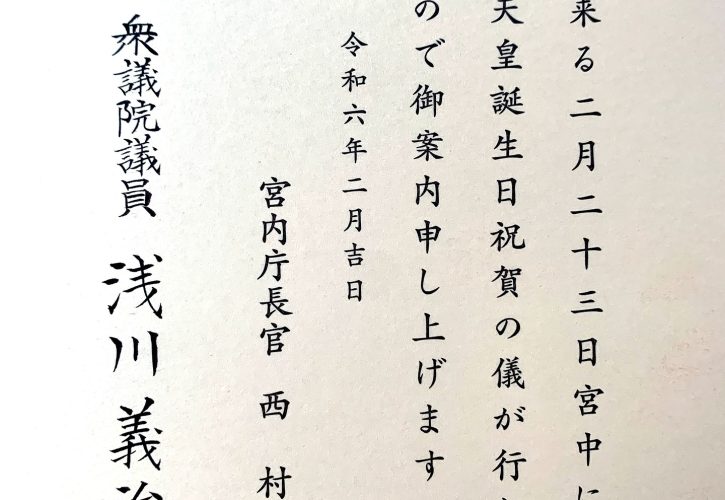 来る二月二十三日宮中に
天皇誕生日祝賀の儀が行
ので御案内申し上げます
令和六年二月吉日
宮内庁長官 西 村
衆議院議員 浅川義治